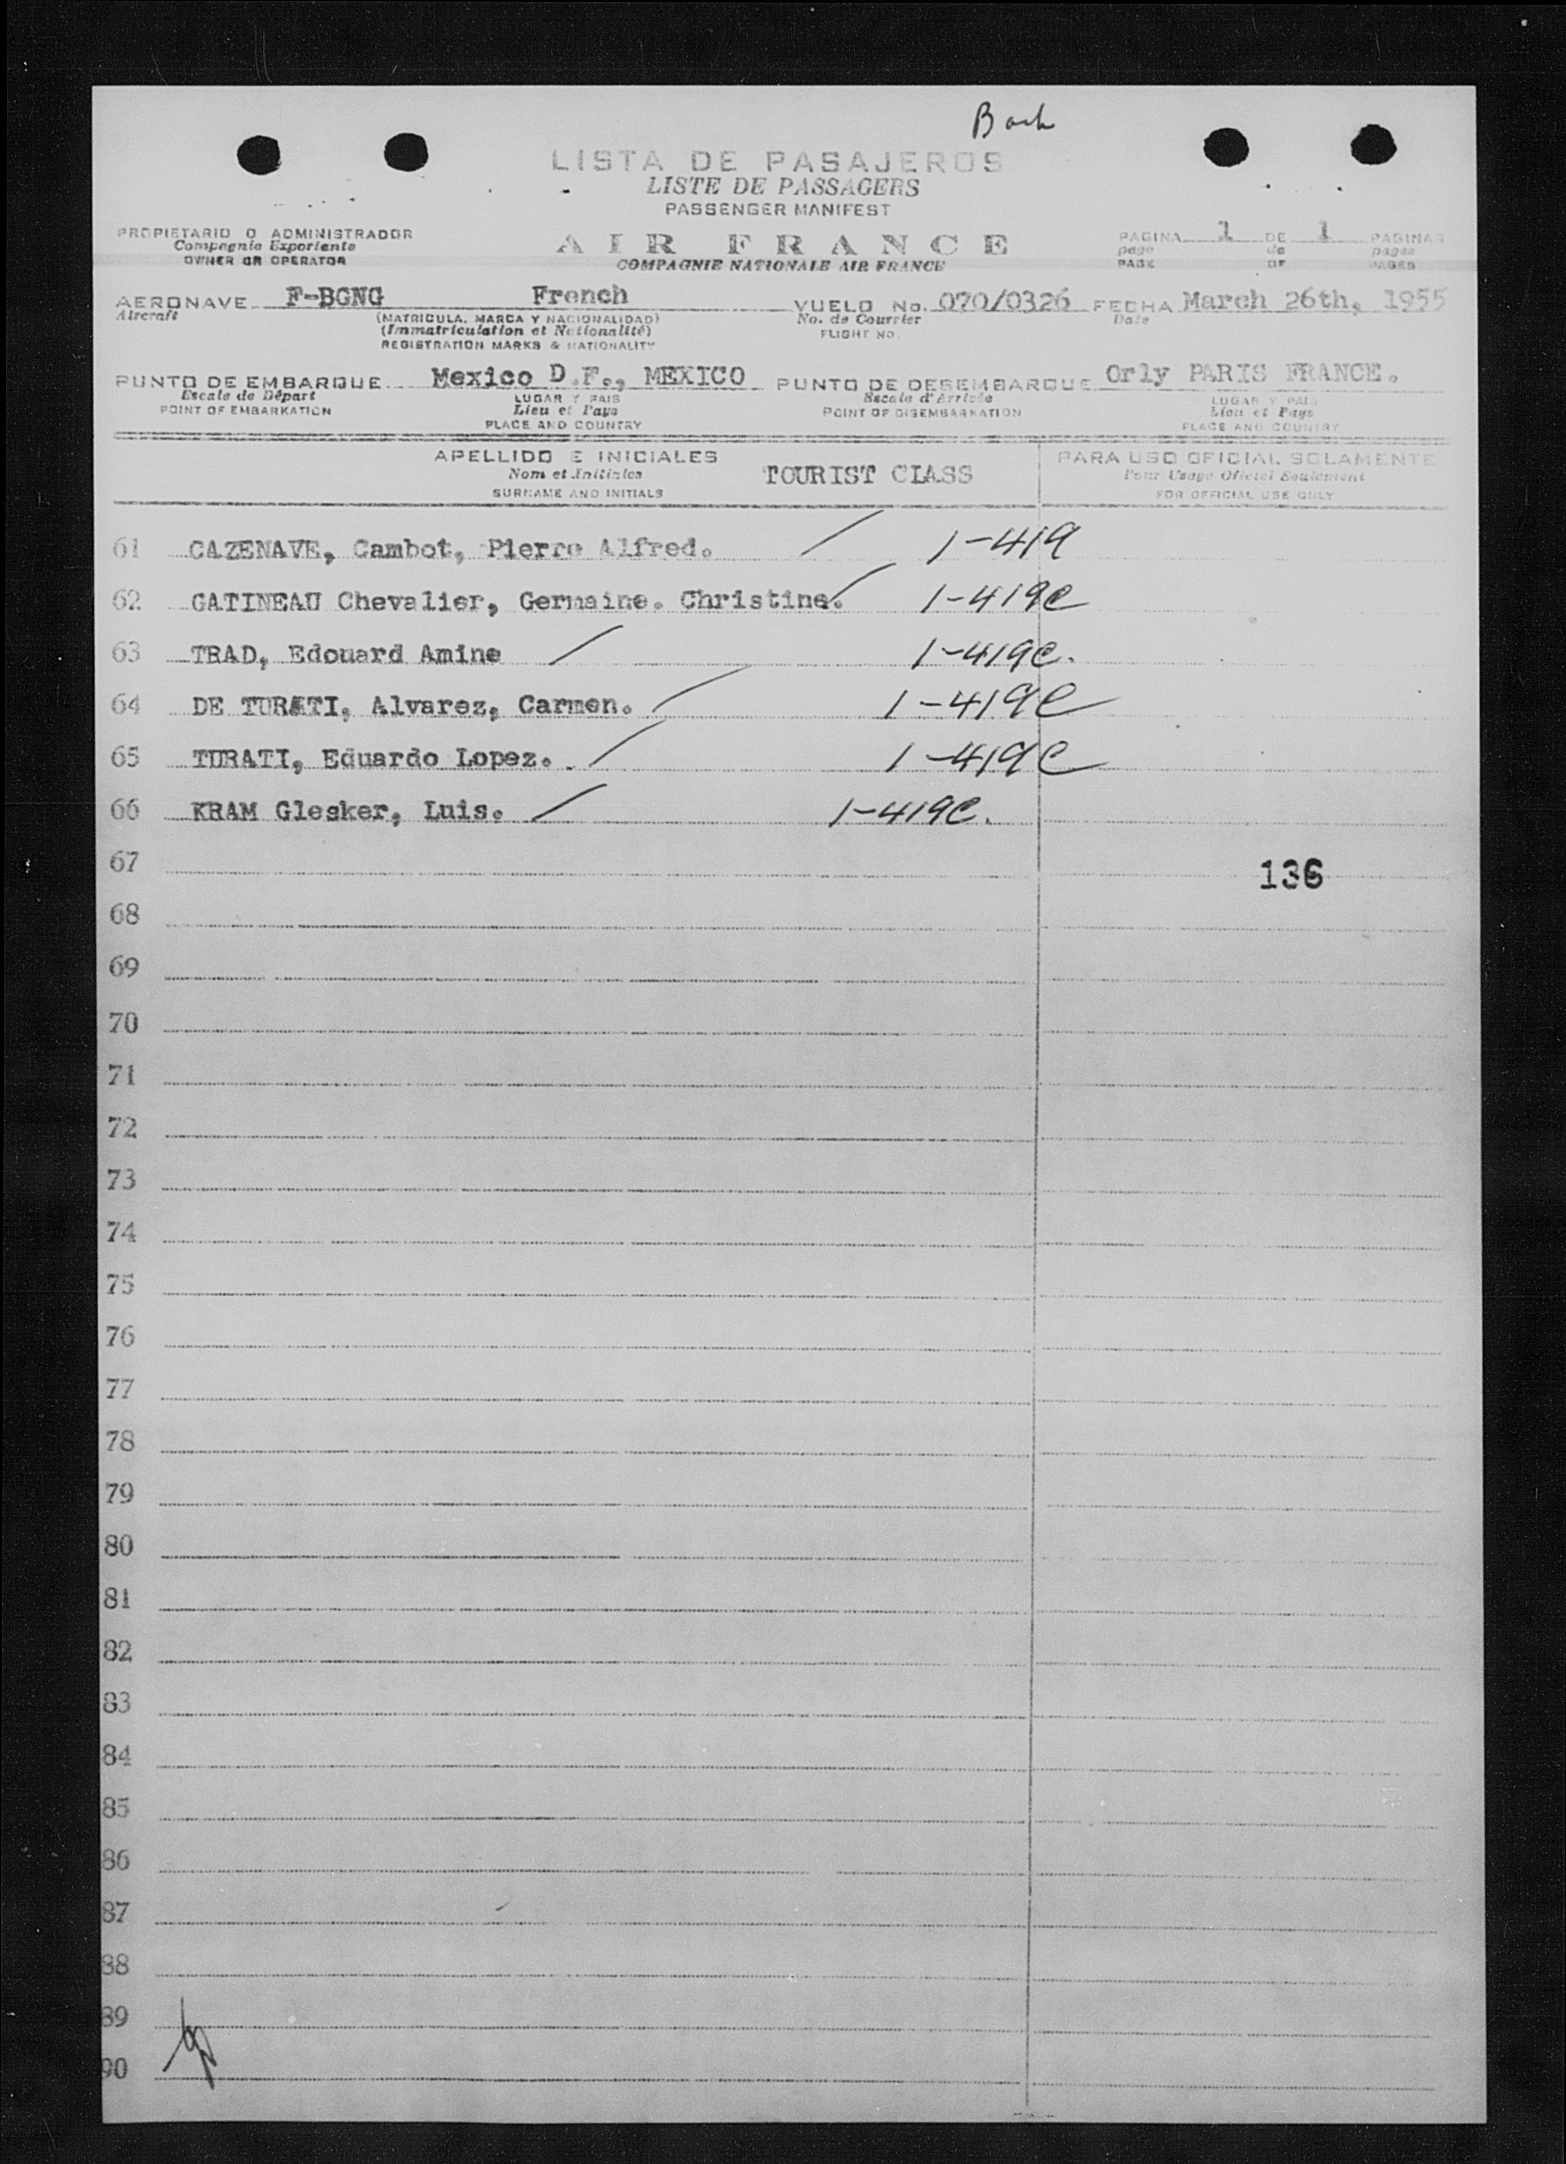 LISTA DE PASAJEROS
LISTE DE PASSAGERS
PASSENGER MANIFEST
PROPIETARIO O ADMINISTRADOR
Compagnie Exportente
OWNER OR OPERATOR
AIR FRANCE
COMPAGNIE NATIONALE AIR FRANCE
PAGINA 1 DE 1 PAGINAS
page de pages
PAGE OF PAGES
AERONAVE F-BGNG French VUELO No. 070/0326 FECHA March 26th, 1955
Aircraft (MATRICULA, MARCA Y NACIONALIDAD) No. de Courrier Date
(Immatriculation et Nationalité) FLIGHT NO.
REGISTRATION MARKS & NATIONALITY
PUNTO DE EMBARQUE Mexico D.F., MEXICO PUNTO DE DESEMBARQUE Orly PARIS FRANCE.
Escale de Départ LUGAR Y PAIS Escale d'Arrivée LUGAR Y PAIS
POINT OF EMBARKATION Lieu et Pays POINT OF DISEMBARKATION Lieu et Pays
PLACE AND COUNTRY PLACE AND COUNTRY
APELLIDO E INICIALES TOURIST CLASS PARA USO OFICIAL SOLAMENTE
Nom et Initiales Pour Usage Officiel Seulement
SURNAME AND INITIALS FOR OFFICIAL USE ONLY
61 CAZENAVE, Cambot, Pierre Alfred. / 1-419
62 GATINEAU Chevalier, Germaine. Christine. / 1-419C
63 TRAD, Edouard Amine / 1-419C.
64 DE TURATI, Alvarez, Carmen. / 1-419C
65 TURATI, Eduardo Lopez. / 1-419C
66 KRAM Glesker, Luis. / 1-419C.
67 136
68
69
70
71
72
73
74
75
76
77
78
79
80
81
82
83
84
85
86
87
88
89
90